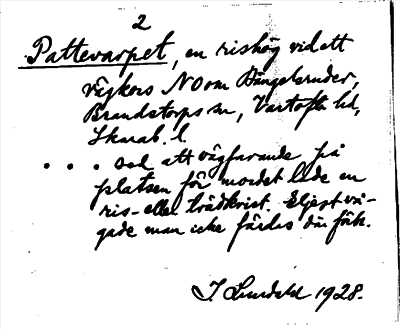 2
Pattevarpet, en rishög vid ett
vägkors NO om Hängelsruder,
Brandstorps sn, Vartofta hd,
Skarab. l.
. . . sed att vägfarande på
platsen för mordet lade en
ris- eller trädkvist. Eljest vå-
gade man icke färdas där förbi.
J. Sundblad 1928.